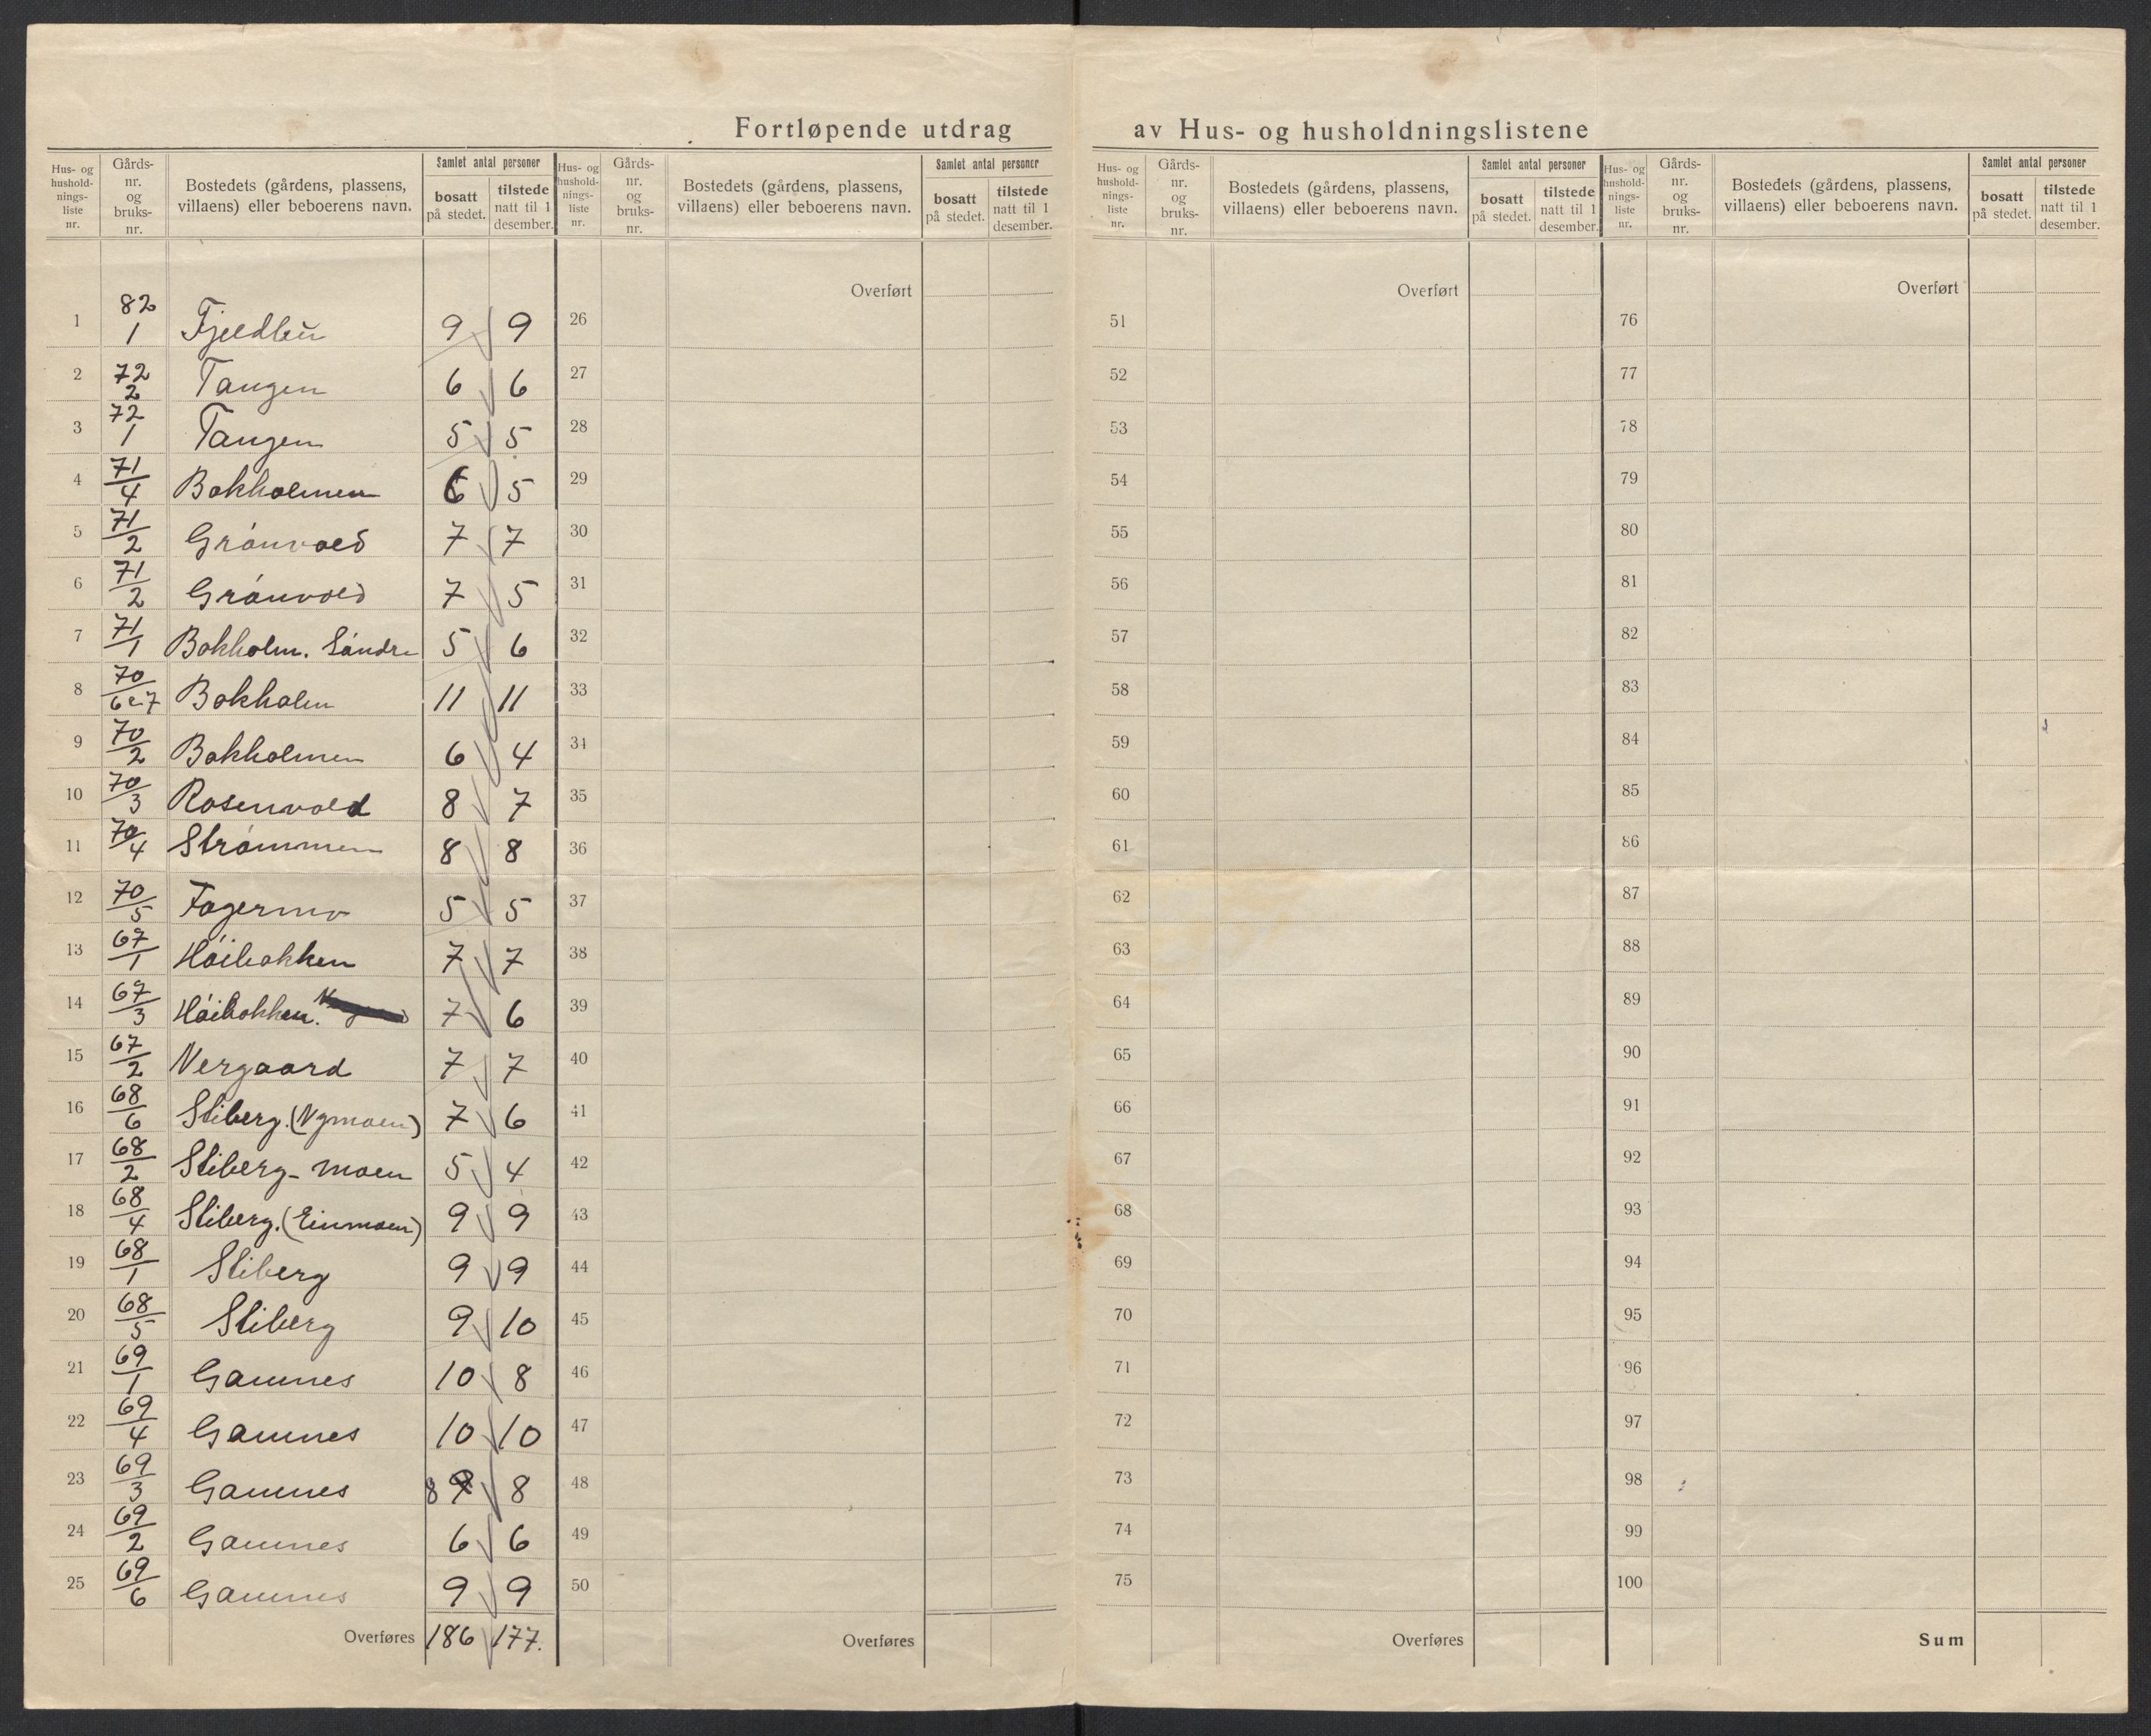 Fortløpende utdrag av Hus- og husholdningslistene
Hus- og hushold-nings-liste nr. Gårds-nr. og bruks-nr. Bostedets (gårdens, plassens, villaens) eller beboerens navn. Samlet antal personer bosatt på stedet. tilstede natt til 1 desember.
Hus- og hushold-nings-liste nr. Gårds-nr. og bruks-nr. Bostedets (gårdens, plassens, villaens) eller beboerens navn. Samlet antal personer bosatt på stedet. tilstede natt til 1 desember.
Hus- og hushold-nings-liste nr. Gårds-nr. og bruks-nr. Bostedets (gårdens, plassens, villaens) eller beboerens navn. Samlet antal personer bosatt på stedet. tilstede natt til 1 desember.
Hus- og hushold-nings-liste nr. Gårds-nr. og bruks-nr. Bostedets (gårdens, plassens, villaens) eller beboerens navn. Samlet antal personer bosatt på stedet. tilstede natt til 1 desember.
Overført Overført Overført
1 82/1 Fjeldbu 9 9 26 51 76
2 72/2 Tangen 6 6 27 52 77
3 72/1 Tangen 5 5 28 53 78
4 71/4 Bakholmen 6 5 29 54 79
5 71/2 Grønvold 7 7 30 55 80
6 71/2 Grønvold 7 5 31 56 81
7 71/1 Bokholm. Søndre 5 6 32 57 82
8 70/6 & 7 Bokholm 11 11 33 58 83
9 70/2 Bokholmen 6 4 34 59 84
10 70/3 Rosenvold 8 7 35 60 85
11 70/4 Strømmen 8 8 36 61 86
12 70/5 Fagermo 5 5 37 62 87
13 67/1 Høibakken 7 7 38 63 88
14 67/3 Høibakken. 7 6 39 64 89
15 67/2 Nergaard 7 7 40 65 90
16 68/6 Stiberg. (Nymoen) 7 6 41 66 91
17 68/2 Stiberg - moen 5 4 42 67 92
18 68/4 Stiberg. (Einmoen) 9 9 43 68 93
19 68/1 Stiberg 9 9 44 69 94
20 68/5 Stiberg 9 10 45 70 95
21 69/1 Gamnes 10 8 46 71 96
22 69/4 Gamnes 10 10 47 72 97
23 69/3 Gamnes 8 9 8 48 73 98
24 69/2 Gamnes 6 6 49 74 99
25 69/6 Gamnes 9 9 50 75 100
Overføres 186 177. Overføres Overføres Sum